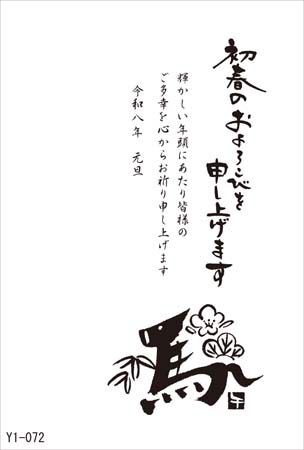 初春のおよろこびを
申し上げます
輝かしい年頭にあたり皆様の
ご多幸を心からお祈り申し上げます
令和八年　元旦
馬
午
Y1-072